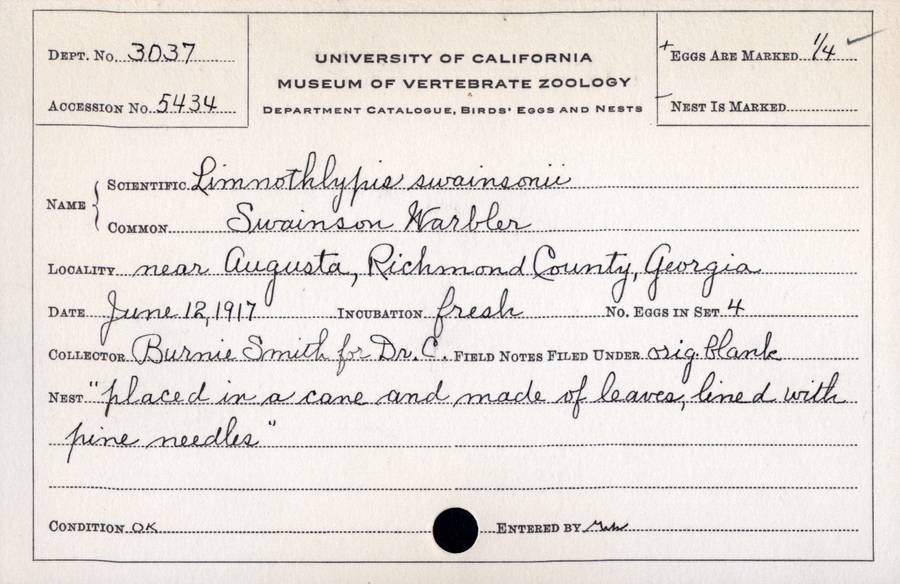 Dept. No. 3037
Accession No. 5434
UNIVERSITY OF CALIFORNIA
MUSEUM OF VERTEBRATE ZOOLOGY
Department Catalogue, Birds' Eggs and Nests
+ Eggs Are Marked 1/4 ✓
– Nest Is Marked
Name { Scientific Limnothlypis swainsonii
Common Swainson Warbler
Locality near Augusta, Richmond County, Georgia
Date June 12, 1917 Incubation fresh No. Eggs in Set 4
Collector Burnie Smith for Dr. C. Field Notes Filed Under orig. blank
Nest "placed in a cane and made of leaves, lined with
pine needles"
Condition OK Entered by